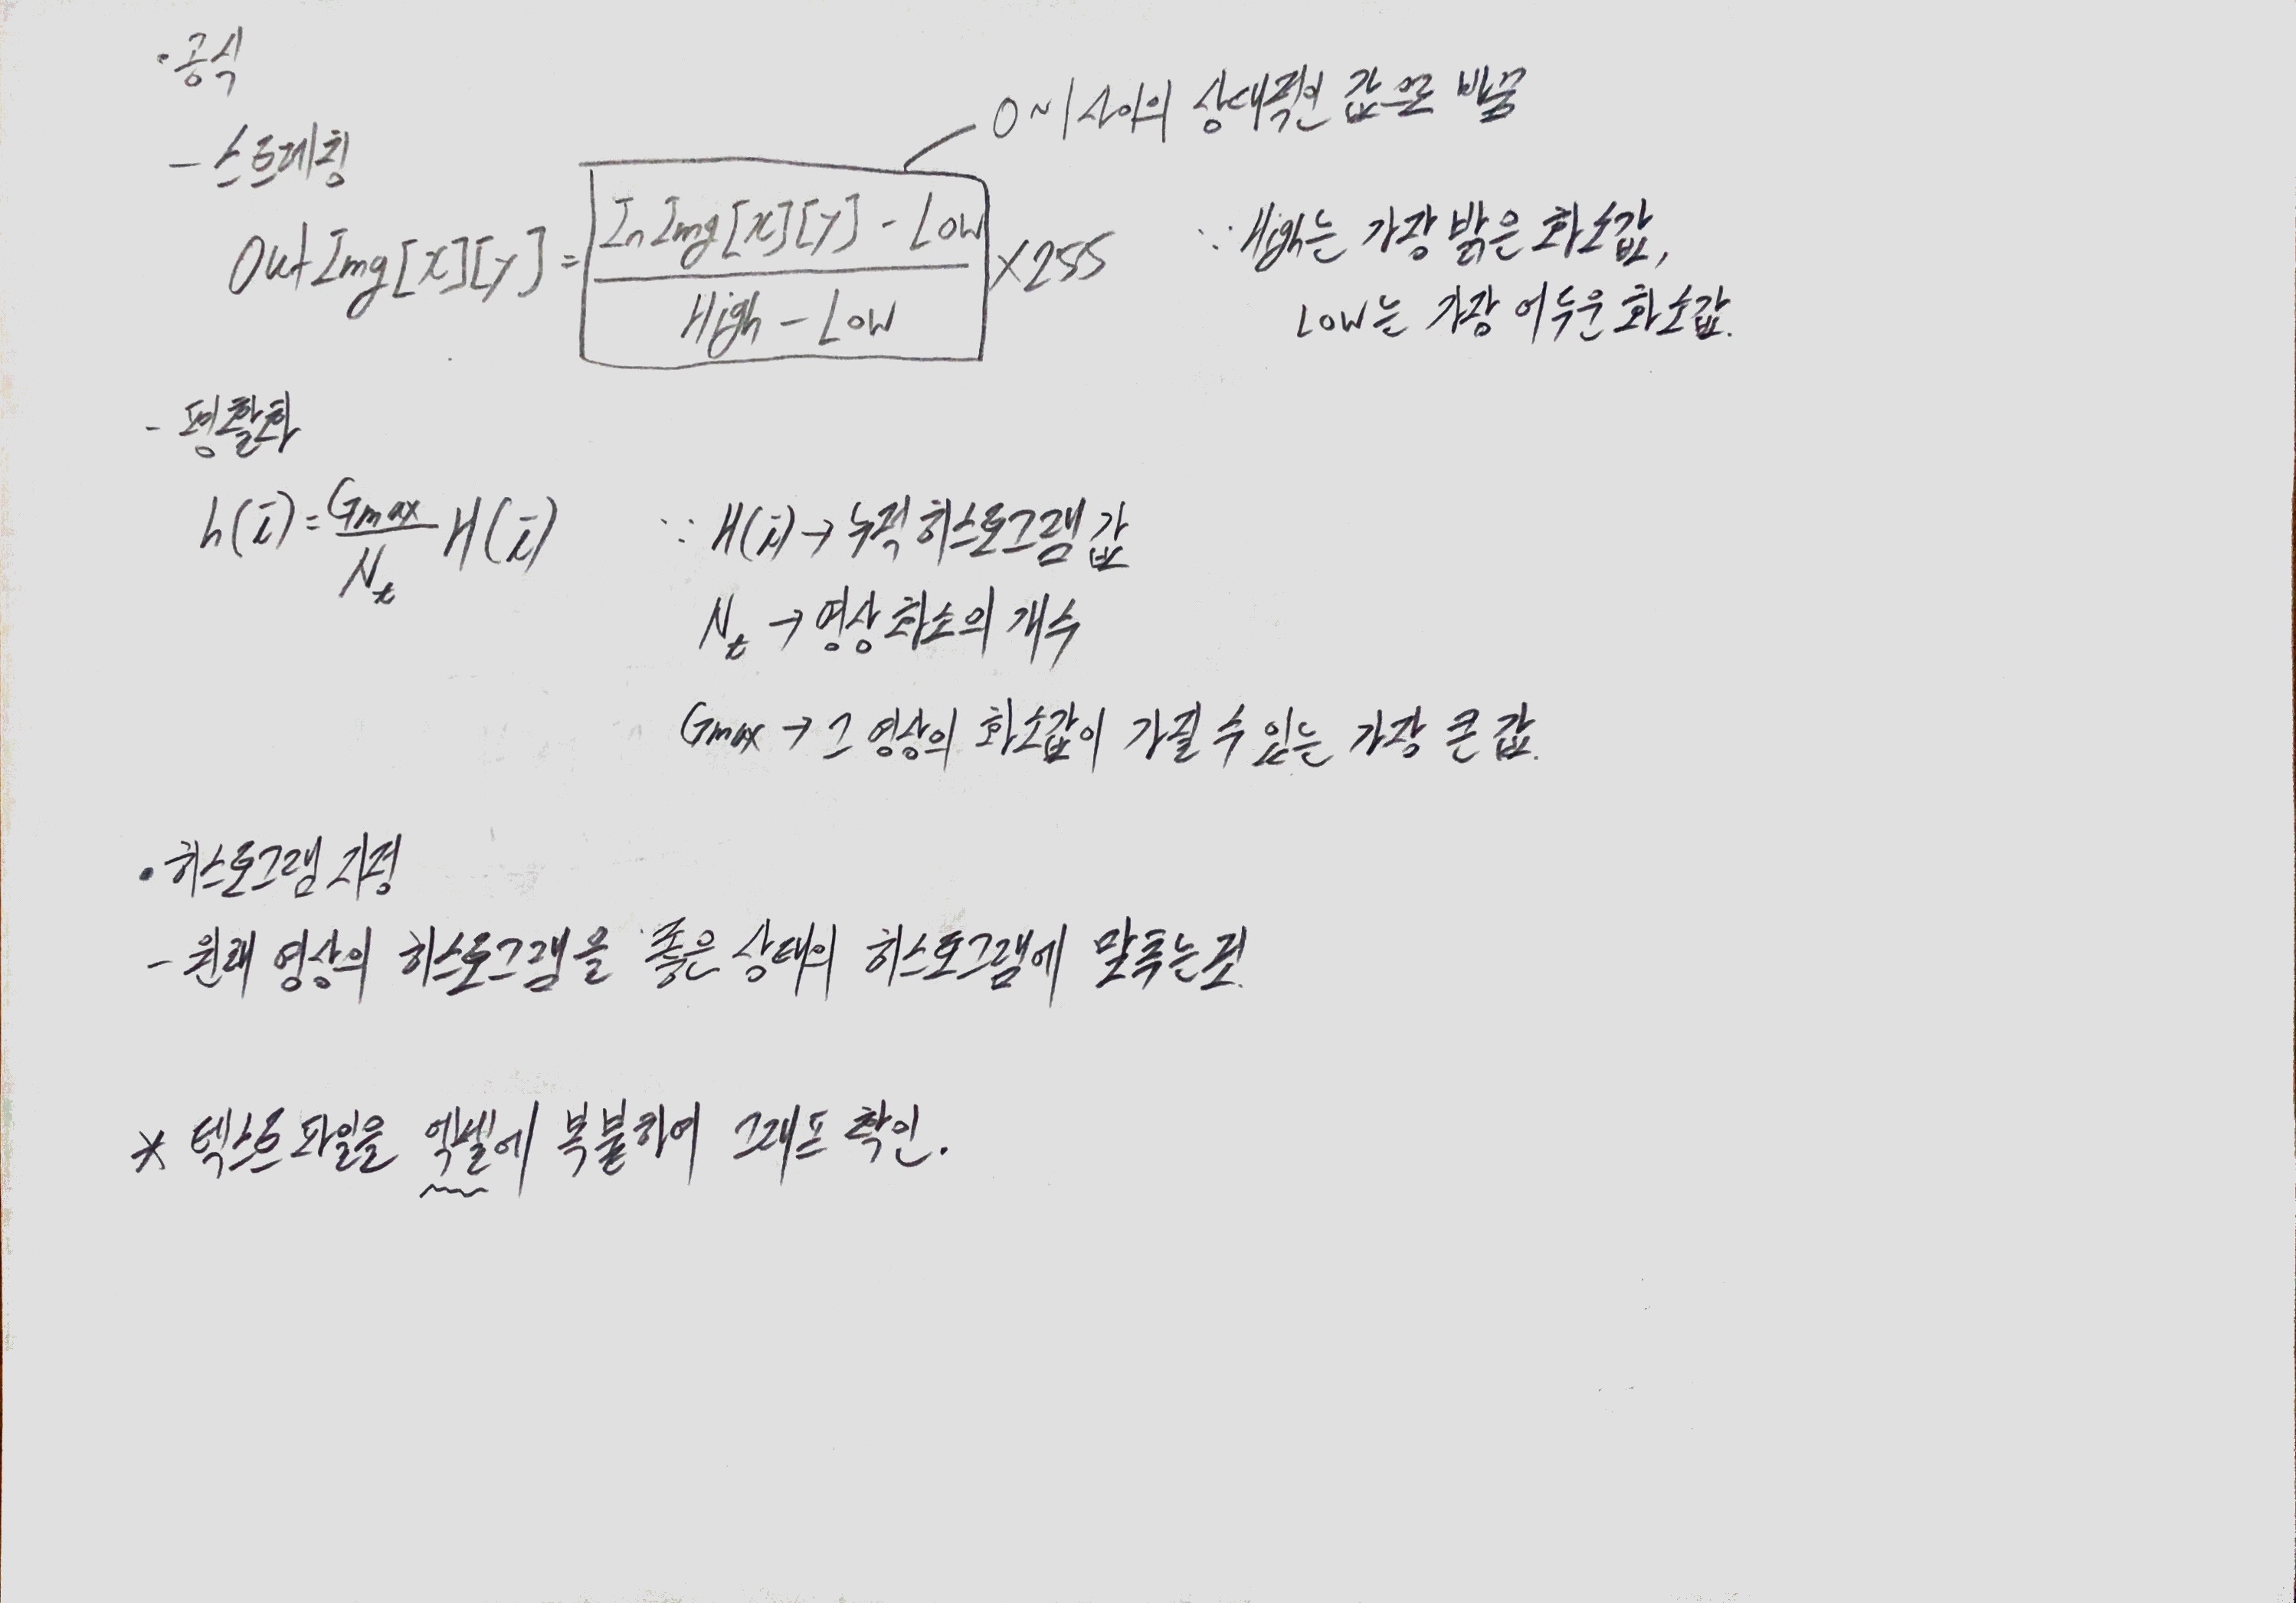 · 공식
- 스트레칭
0~1 사이의 상대적인 값으로 바꿈
OutImg[x][y] = (InImg[x][y] - Low) / (High - Low) × 255
∵ High는 가장 밝은 화소값,
Low는 가장 어두운 화소값.
- 평활화
h(i) = Gmax / Nt H(i)
∵ H(i) → 누적 히스토그램 값
Nt → 영상 화소의 개수
Gmax → 그 영상의 화소값이 가질 수 있는 가장 큰 값.
• 히스토그램 지정
- 원래 영상의 히스토그램을 좋은 상태의 히스토그램에 맞추는 것.
* 텍스트 파일을 엑셀에 복붙하여 그래프 확인.